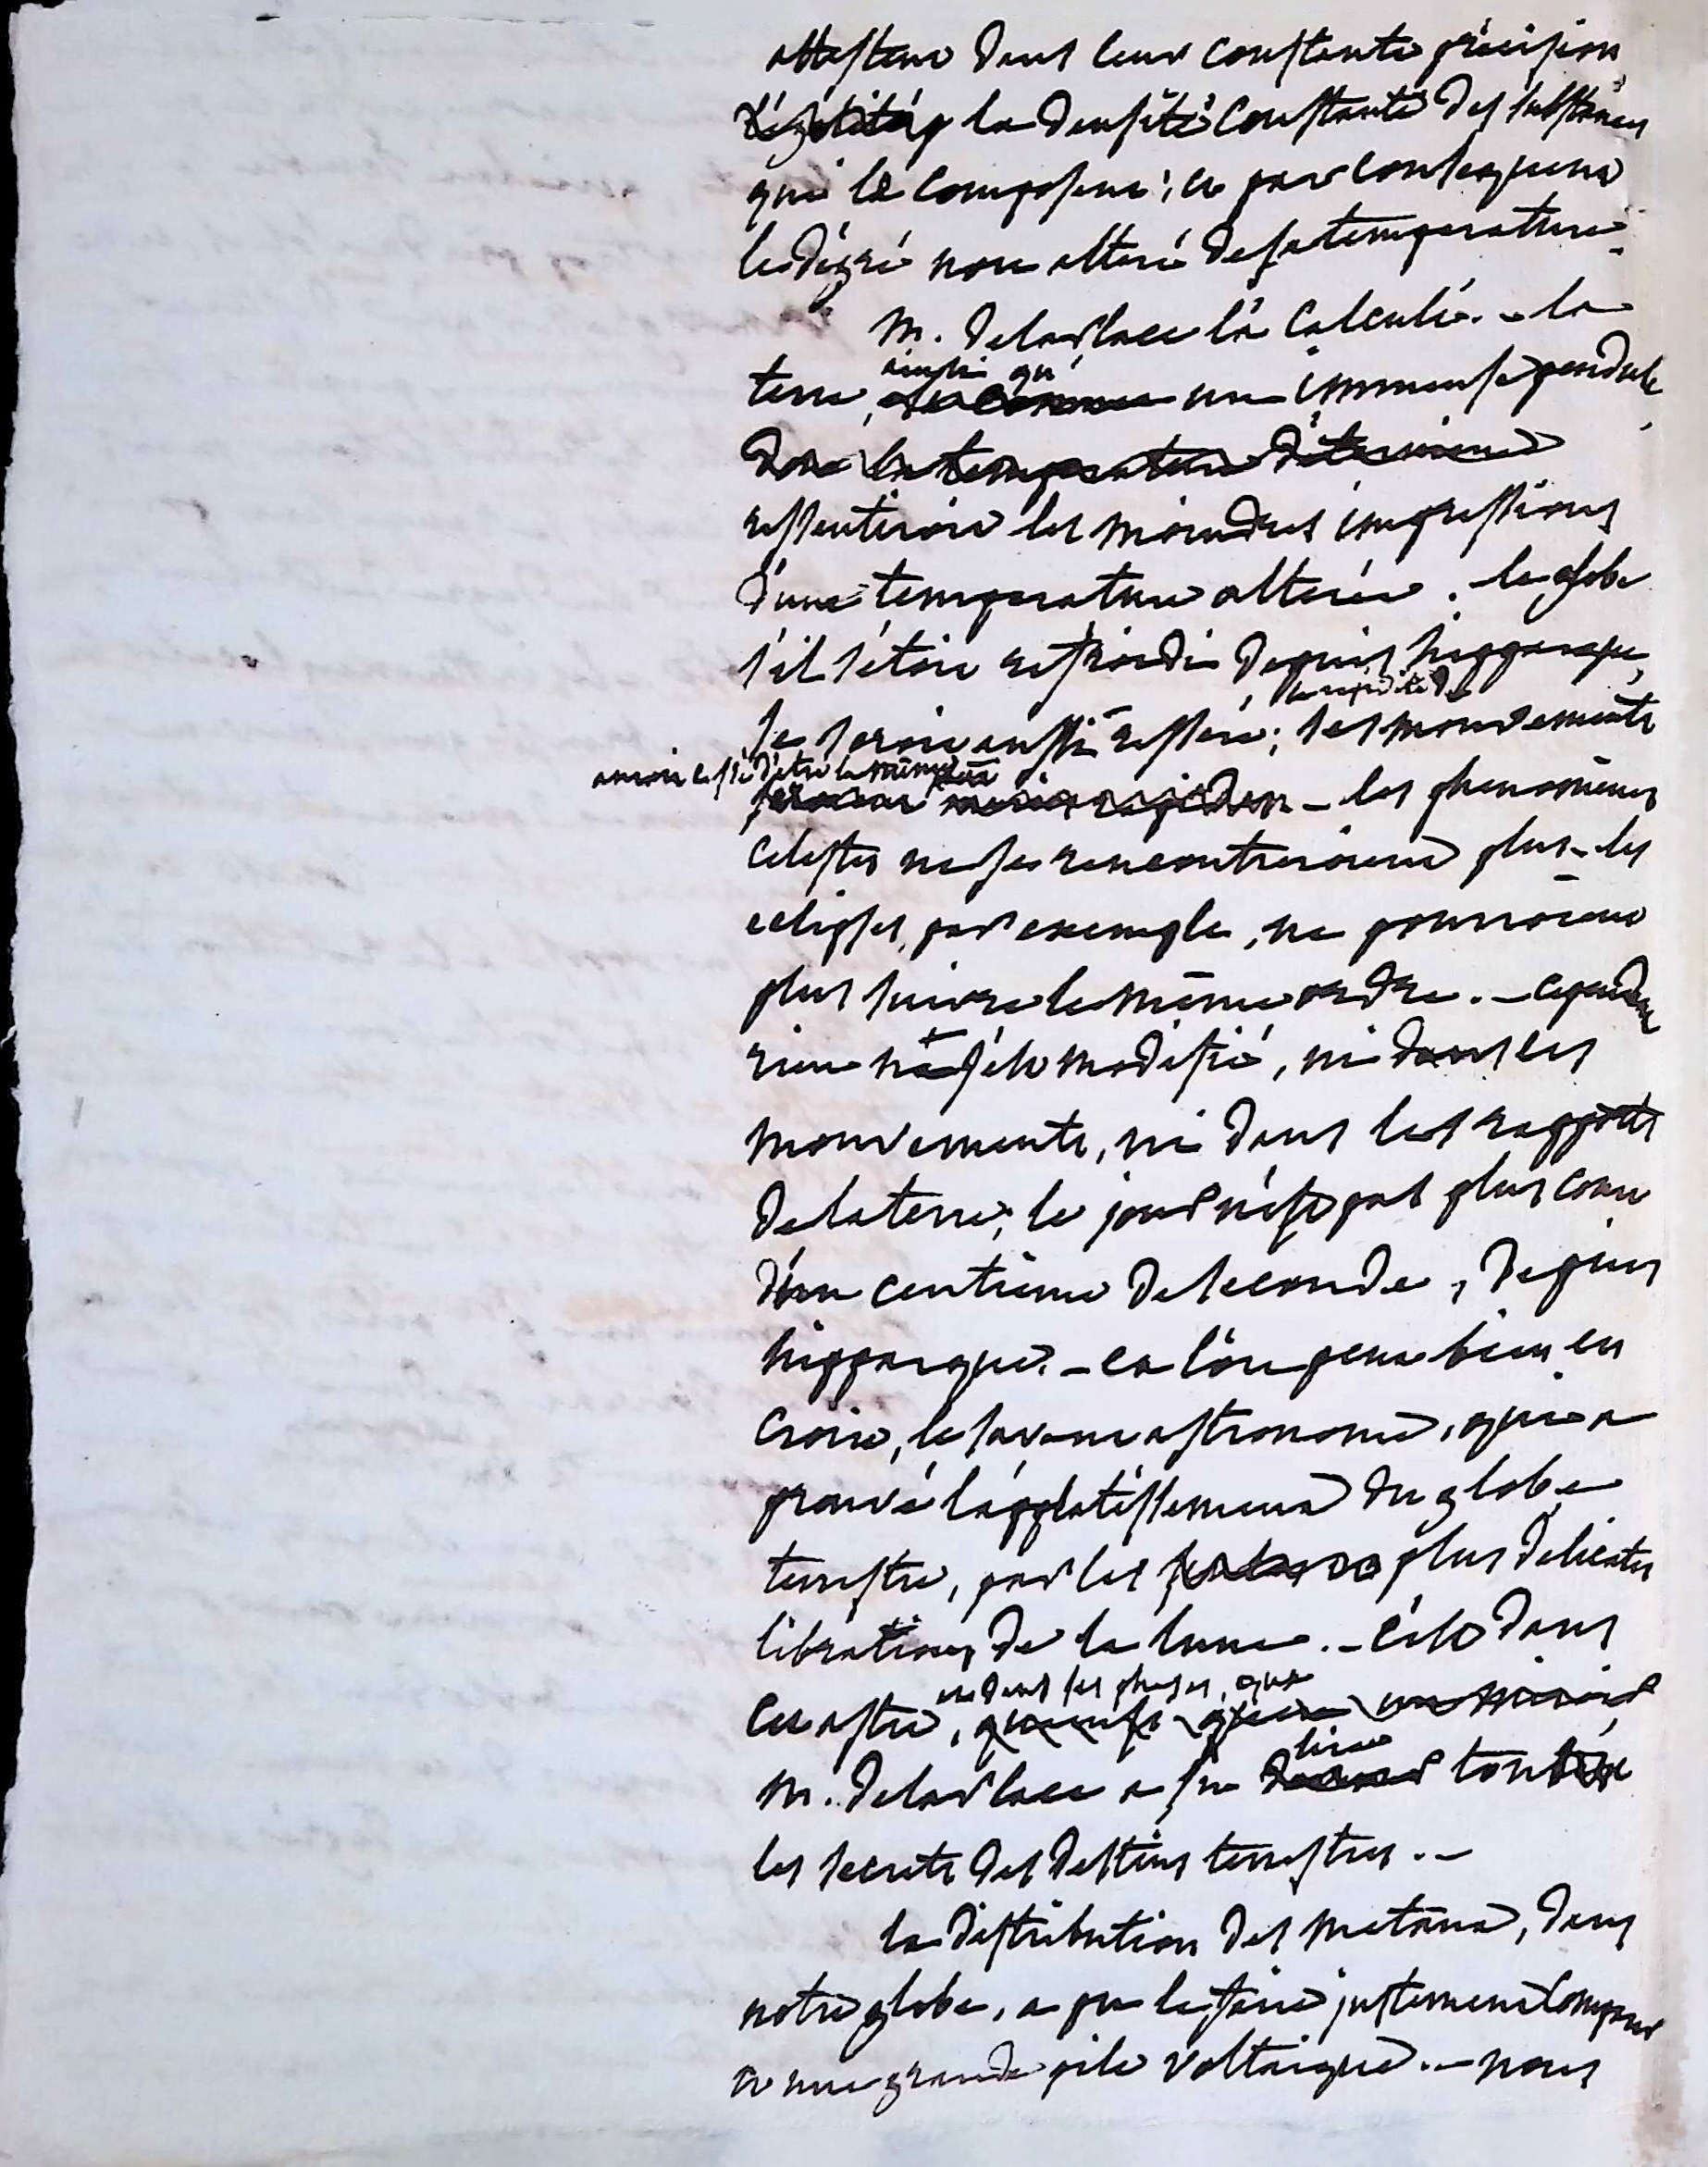 attestent dans leur constante précision
la densité constante des substances
qui le composent, et par consequent
le dégré non alteré de sa temperature.
M. de la Place l'a calculé. - la
terre, ainsi qu' une immense pendule
dont la temperature determine
ressentiroit les moindres impressions
d'une temperature alterée. le globe
s'il s'étoit refroidi depuis hipparque,
la rapidité de
se seroit aussi resserré; ses mouvements
auroit cessé d'etre la même
- les phenomènes
celestes ne se rencontreroient plus - les
eclipses, par exemple, ne pourroient
plus suivre le même ordre. - cependant
rien ne s'est modifié, ni dans les
mouvements, ni dans les rapports
de la terre; le jour n'est pas plus court
d'un centieme de seconde, depuis
hipparque. - et l'on peut bien en
croire, le savant astronome, qui a
prouvé l'applatissement du globe
terrestre, par les plus delicates
librations de la lune. - c'est dans
et dans ses phases, que
cet astre,
lire
M. de la Place a su tous
les secrets des destins terrestres. -
la distribution des metaux, dans
notre globe, a pu le faire justement comparer
a une grande pile voltaique. - nous